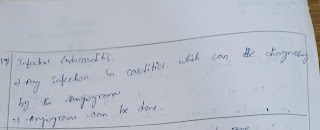 17) Infective Endocarditis.
⇒ Any infection in cardities. which can be diagnosing
by the Angiogram
⇒ Angiogram can be done.